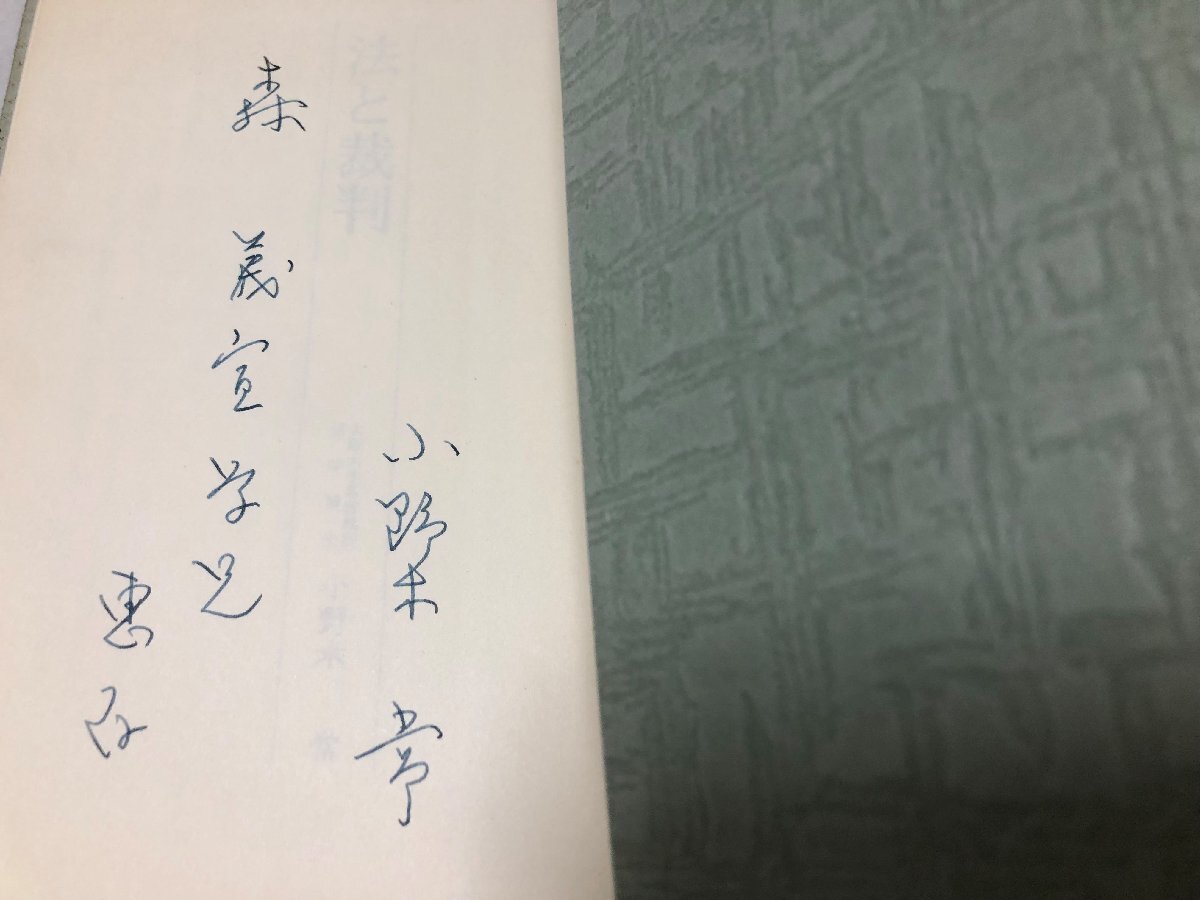 小野木 常
森 茂宣学兄
恵存
法と裁判
小野木 常